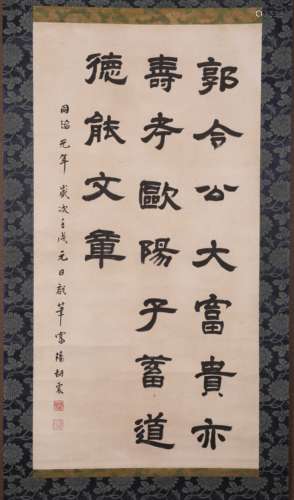 郭令公大富貴亦
壽考歐陽子蓄道
德能文章
同治元年歲次壬戌元日試筆富陽胡震